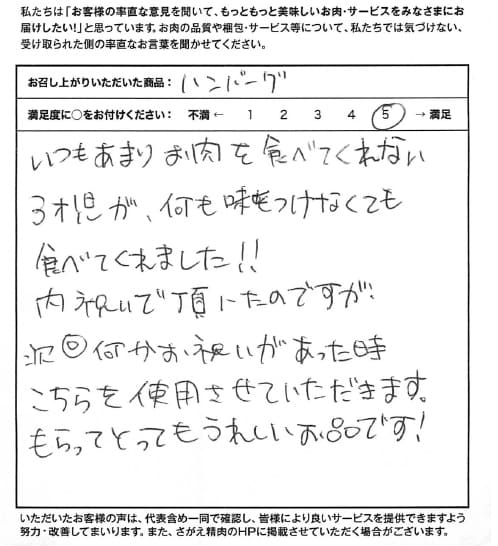 私たちは「お客様の率直な意見を聞いて、もっともっと美味しいお肉・サービスをみなさまにお
届けしたい!」と思っています。お肉の品質や梱包・サービス等について、私たちでは気づけない、
受け取られた側の率直なお言葉を聞かせてください。
お召し上がりいただいた商品： ハンバーグ
満足度に○をお付けください： 不満 ← 1 2 3 4 5 → 満足
いつもあまりお肉を食べてくれない
3才児が、何も味をつけなくても
食べてくれました!!
内祝いで頂いたのですが、
次回何かお祝いがあった時
こちらを使用させていただきます。
もらってとってもうれしいお品です!
いただいたお客様の声は、代表含め一同で確認し、皆様により良いサービスを提供できますよう
努力・改善してまいります。また、さがえ精肉のHPに掲載させていただく場合がございます。